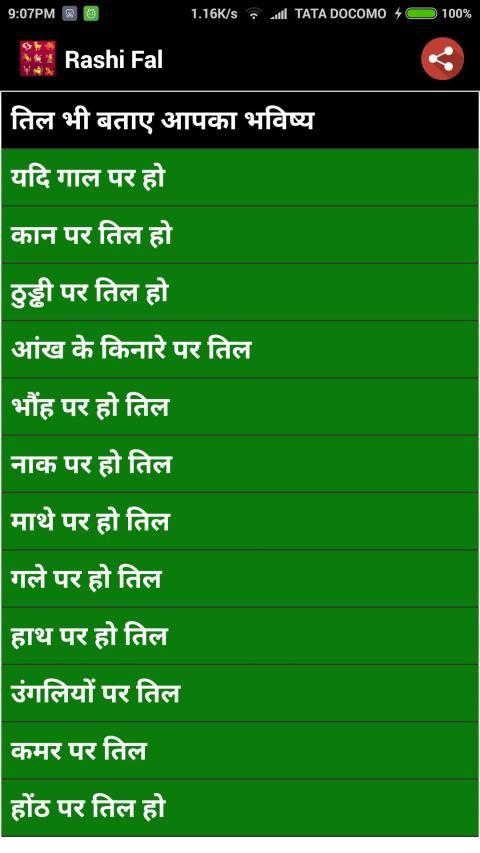 9:07PM 1.16K/s TATA DOCOMO 100%
Rashi Fal
तिल भी बताए आपका भविष्य
यदि गाल पर हो
कान पर तिल हो
ठुड्ढी पर तिल हो
आंख के किनारे पर तिल
भौंह पर हो तिल
नाक पर हो तिल
माथे पर हो तिल
गले पर हो तिल
हाथ पर हो तिल
उंगलियों पर तिल
कमर पर तिल
होंठ पर तिल हो